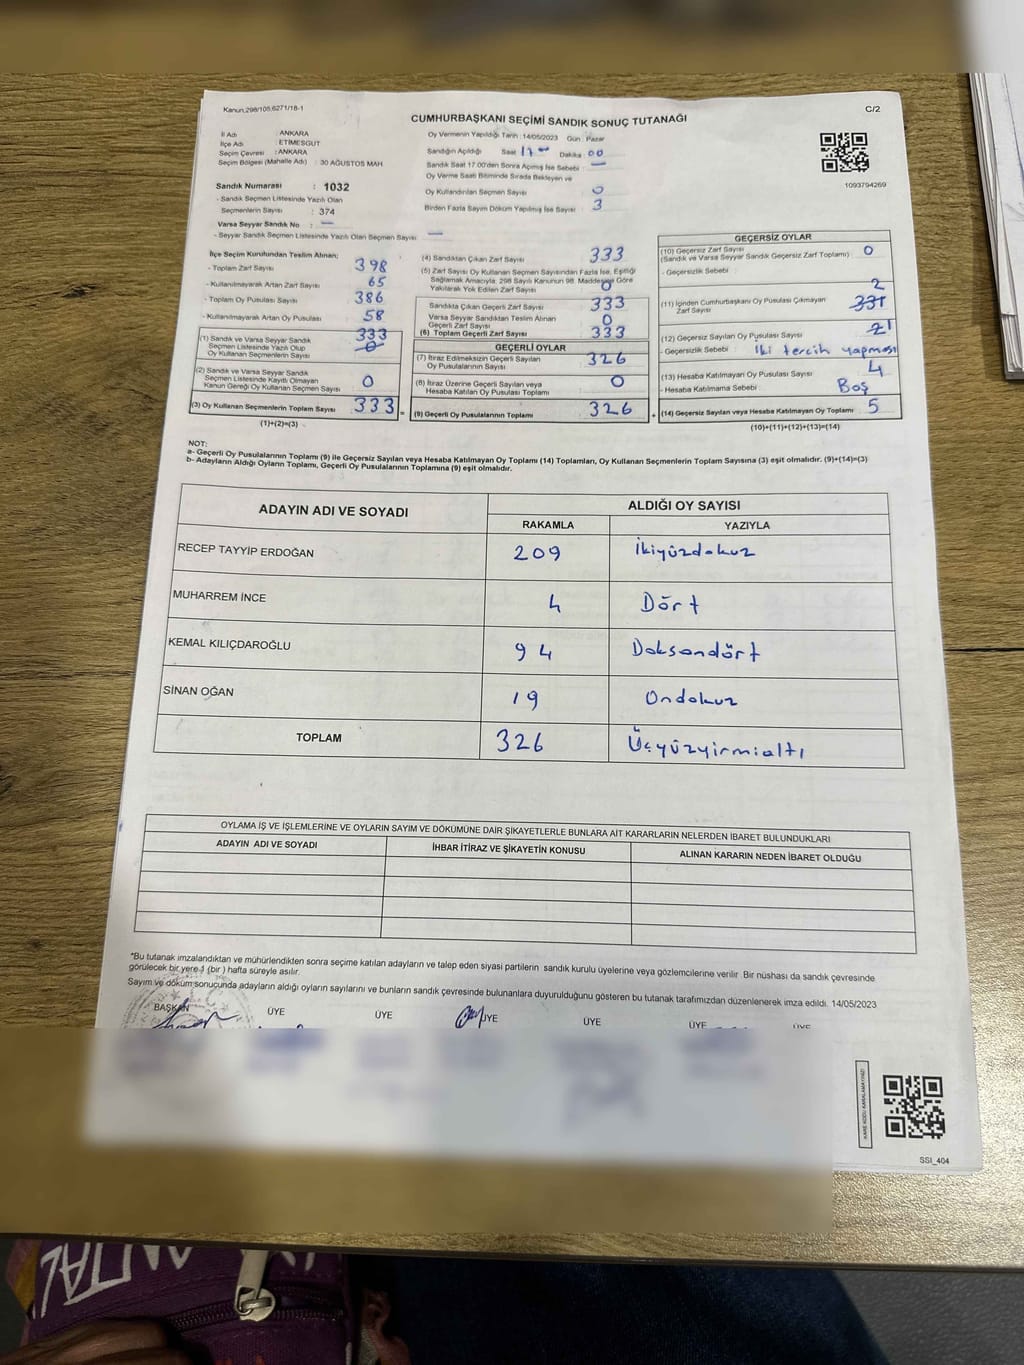 Kanun:298/105,6271/18-1
C/2
CUMHURBAŞKANI SEÇİMİ SANDIK SONUÇ TUTANAĞI
İl Adı : ANKARA
İlçe Adı : ETİMESGUT
Seçim Çevresi : ANKARA
Seçim Bölgesi (Mahalle Adı) : 30 AĞUSTOS MAH
Sandık Numarası : 1032
- Sandık Seçmen Listesinde Yazılı Olan
Seçmenlerin Sayısı : 374
Varsa Seyyar Sandık No : —
- Seyyar Sandık Seçmen Listesinde Yazılı Olan Seçmen Sayısı —
Oy Vermenin Yapıldığı Tarih : 14/05/2023 Gün : Pazar
Sandığın Açıldığı Saat 17 00 Dakika : 00
Sandık Saat 17:00'den Sonra Açılmış İse Sebebi —
Oy Verme Saati Bitiminde Sırada Bekleyen ve
Oy Kullandırılan Seçmen Sayısı 0
Birden Fazla Sayım Döküm Yapılmış İse Sayısı 3
1093794269
İlçe Seçim Kurulundan Teslim Alınan;
- Toplam Zarf Sayısı 398
- Kullanılmayarak Artan Zarf Sayısı 65
- Toplam Oy Pusulası Sayısı 386
- Kullanılmayarak Artan Oy Pusulası 58
(1) Sandık ve Varsa Seyyar Sandık
Seçmen Listesinde Yazılı Olup
Oy Kullanan Seçmenlerin Sayısı
333
0
(2) Sandık ve Varsa Seyyar Sandık
Seçmen Listesinde Kayıtlı Olmayan
Kanun Gereği Oy Kullanan Seçmen Sayısı
0
(3) Oy Kullanan Seçmenlerin Toplam Sayısı 333 =
(1)+(2)=(3)
(4) Sandıktan Çıkan Zarf Sayısı 333
(5) Zarf Sayısı Oy Kullanan Seçmen Sayısından Fazla İse, Eşitliği
Sağlamak Amacıyla; 298 Sayılı Kanunun 98. Maddesine Göre
Yakılarak Yok Edilen Zarf Sayısı 0
Sandıkta Çıkan Geçerli Zarf Sayısı 333
Varsa Seyyar Sandıktan Teslim Alınan
Geçerli Zarf Sayısı 0
(6) Toplam Geçerli Zarf Sayısı 333
GEÇERLİ OYLAR
(7) İtiraz Edilmeksizin Geçerli Sayılan
Oy Pusulalarının Sayısı 326
(8) İtiraz Üzerine Geçerli Sayılan veya
Hesaba Katılan Oy Pusulası Toplamı 0
(9) Geçerli Oy Pusulalarının Toplamı 326 +
GEÇERSİZ OYLAR
(10) Geçersiz Zarf Sayısı
(Sandık ve Varsa Seyyar Sandık Geçersiz Zarf Toplamı) 0
- Geçersizlik Sebebi :
2
(11) İçinden Cumhurbaşkanı Oy Pusulası Çıkmayan
Zarf Sayısı 331
(12) Geçersiz Sayılan Oy Pusulası Sayısı 21
- Geçersizlik Sebebi : İki tercih yapması
(13) Hesaba Katılmayan Oy Pusulası Sayısı 4
- Hesaba Katılmama Sebebi : Boş
(14) Geçersiz Sayılan veya Hesaba Katılmayan Oy Toplamı 5
(10)+(11)+(12)+(13)=(14)
NOT:
a- Geçerli Oy Pusulalarının Toplamı (9) ile Geçersiz Sayılan veya Hesaba Katılmayan Oy Toplamı (14) Toplamları, Oy Kullanan Seçmenlerin Toplam Sayısına (3) eşit olmalıdır. (9)+(14)=(3)
b- Adayların Aldığı Oyların Toplamı, Geçerli Oy Pusulalarının Toplamına (9) eşit olmalıdır.
ADAYIN ADI VE SOYADI
ALDIĞI OY SAYISI
RAKAMLA YAZIYLA
RECEP TAYYİP ERDOĞAN 209 İkiyüzdokuz
MUHARREM İNCE 4 Dört
KEMAL KILIÇDAROĞLU 94 Doksandört
SİNAN OĞAN 19 Ondokuz
TOPLAM 326 Üçyüzyirmialtı
OYLAMA İŞ VE İŞLEMLERİNE VE OYLARIN SAYIM VE DÖKÜMÜNE DAİR ŞİKAYETLERLE BUNLARA AİT KARARLARIN NELERDEN İBARET BULUNDUKLARI
ADAYIN ADI VE SOYADI İHBAR İTİRAZ VE ŞİKAYETİN KONUSU ALINAN KARARIN NEDEN İBARET OLDUĞU
*Bu tutanak imzalandıktan ve mühürlendikten sonra seçime katılan adayların ve talep eden siyasi partilerin sandık kurulu üyelerine veya gözlemcilerine verilir. Bir nüshası da sandık çevresinde
görülecek bir yere 1 (bir ) hafta süreyle asılır.
Sayım ve döküm sonucunda adayların aldığı oyların sayılarını ve bunların sandık çevresinde bulunanlara duyurulduğunu gösteren bu tutanak tarafımızdan düzenlenerek imza edildi. 14/05/2023
BAŞKAN ÜYE ÜYE ÜYE ÜYE ÜYE ÜYE
SSI_404